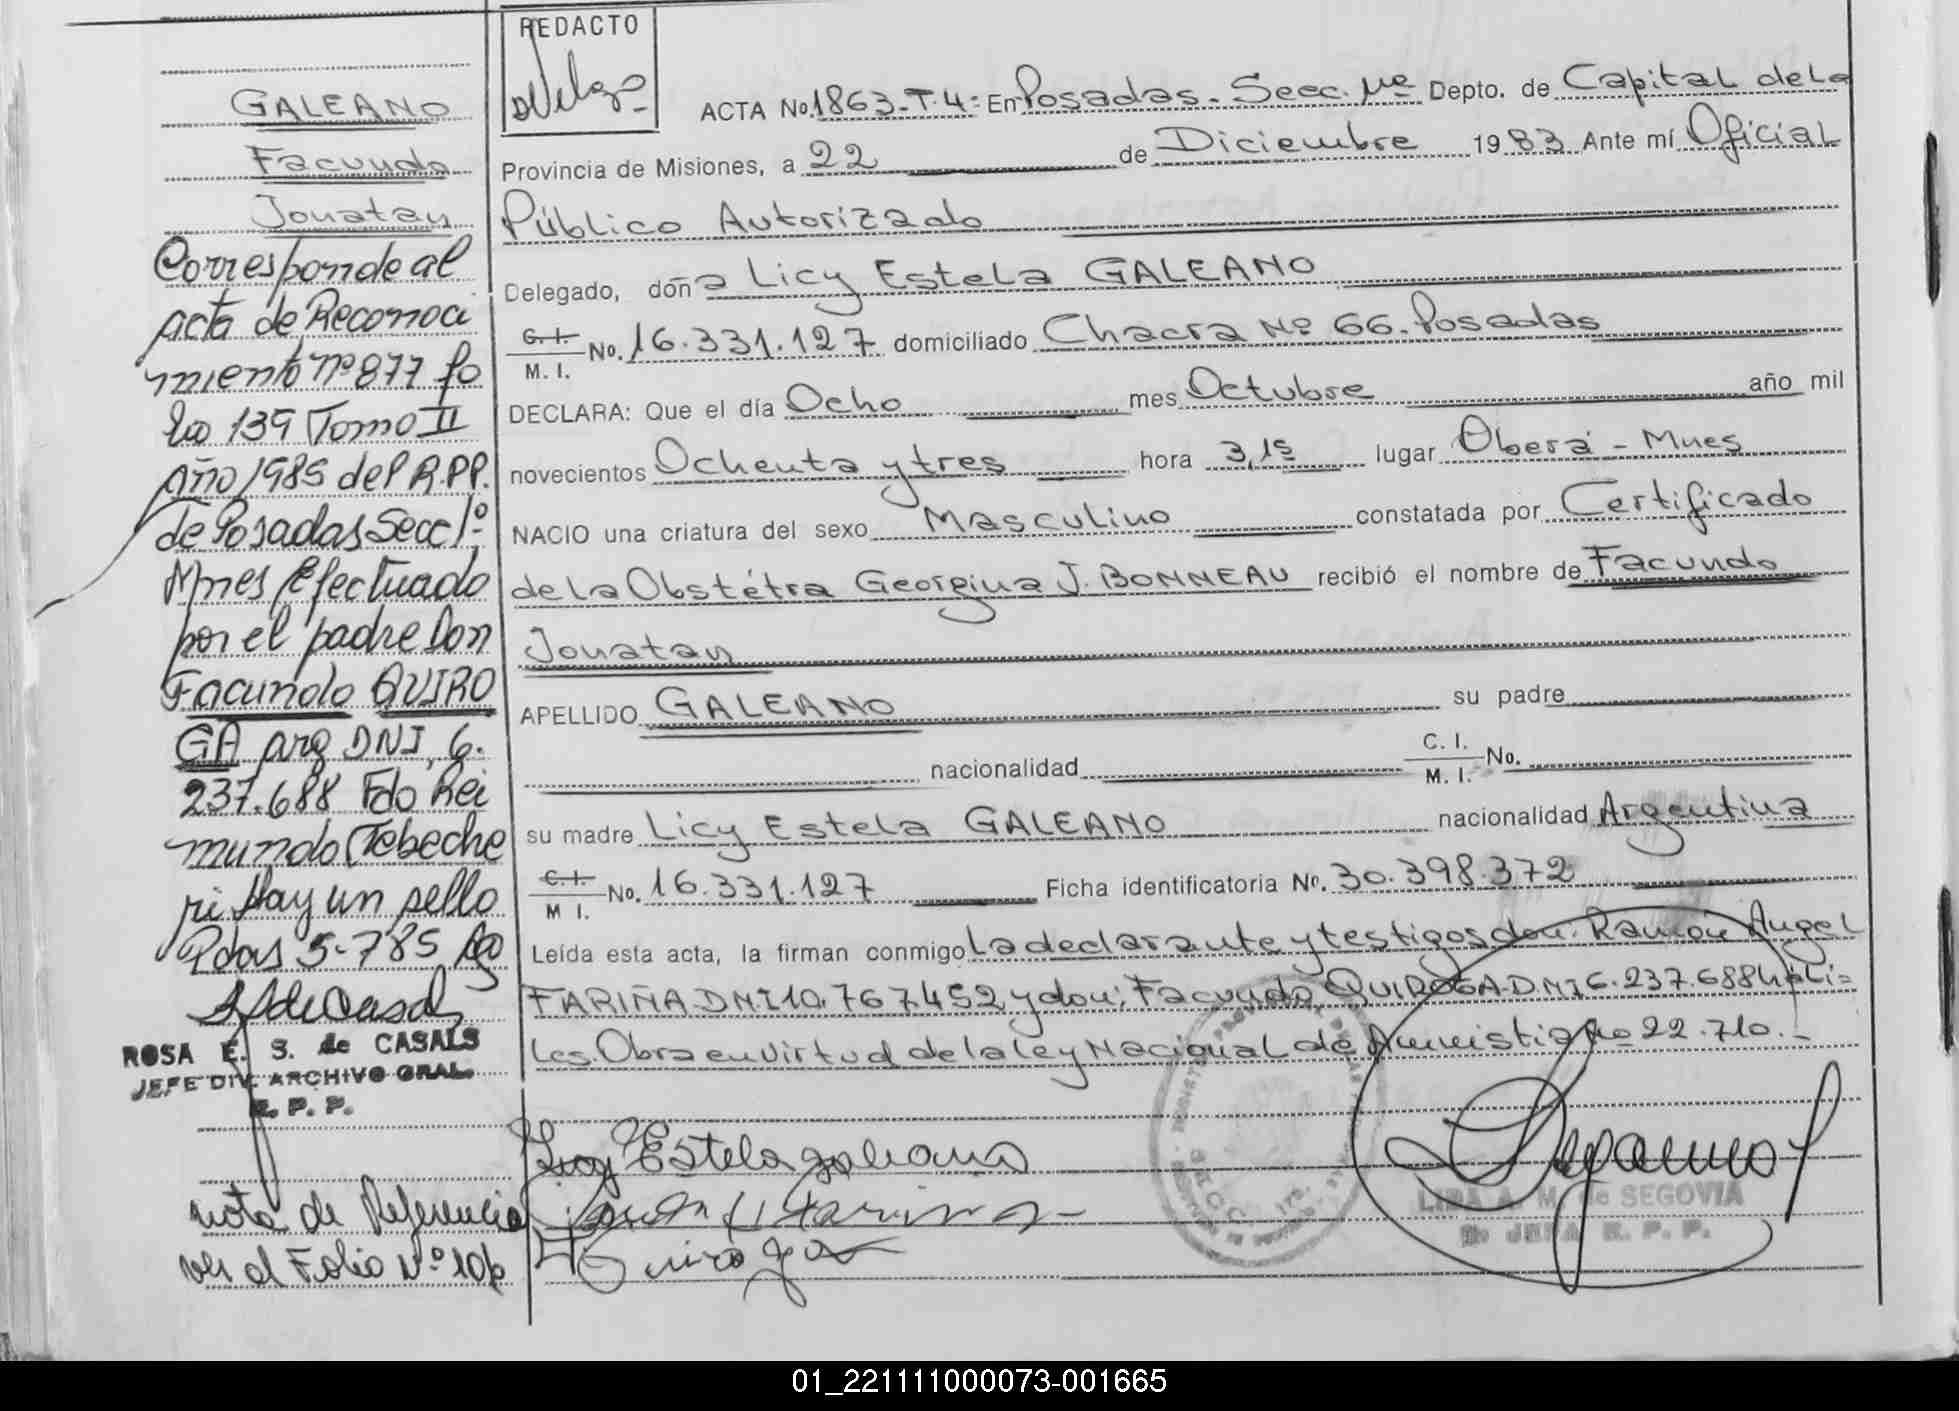 GALEANO
Facundo
Jonatan
Corresponde al
acta de Reconoci
miento nº 877 fo
lio 139 Tomo II
Año 1985 del R.PP.
de Posadas Secc 1º
Mnes Efectuado
por el padre Don
Facundo QUIRO
GA arg DNI, 6.
237.688 Fdo Rei
mundo Tebeche
ri Hay un sello
Pdas 5-785
ROSA E. S. de CASALS
JEFE DIV. ARCHIVO GRAL.
R. P. P.
nota de Referencia
ver el Folio Nº 106
REDACTO
ACTA No. 1863-T.4: En Posadas. Secc. 1ra Depto. de Capital de la
Provincia de Misiones, a 22 de Diciembre 1983 Ante mí Oficial
Público Autorizado
Delegado, doña Licy Estela GALEANO
C. I.
M. I. No. 16.331.127 domiciliado Chacra Nº 66. Posadas
DECLARA: Que el día Ocho mes Octubre año mil
novecientos Ochenta y tres hora 3,15 lugar Oberá - Mnes
NACIO una criatura del sexo Masculino constatada por Certificado
de la Obstétra Georgina J. BONNEAU recibió el nombre de Facundo
Jonatan
APELLIDO GALEANO su padre
nacionalidad C. I.
M. I. No.
su madre Licy Estela GALEANO nacionalidad Argentina
C. I.
M I. No. 16.331.127 Ficha identificatoria Nº. 30.398.372
Leída esta acta, la firman conmigo la declarante y testigos don: Ramón Angel
FARIÑA D.N.I 10.767.452 y don: Facundo QUIROGA-D.N.I 6.237.688 hábi=
les. Obra en virtud de la Ley Nacional de Amnistia Nº 22.710.-
Licy Estela galeano
Quiroga
SECC. 1ra.
LIDA A. M. de SEGOVIA
JEFA R. P. P.
01_221111000073-001665